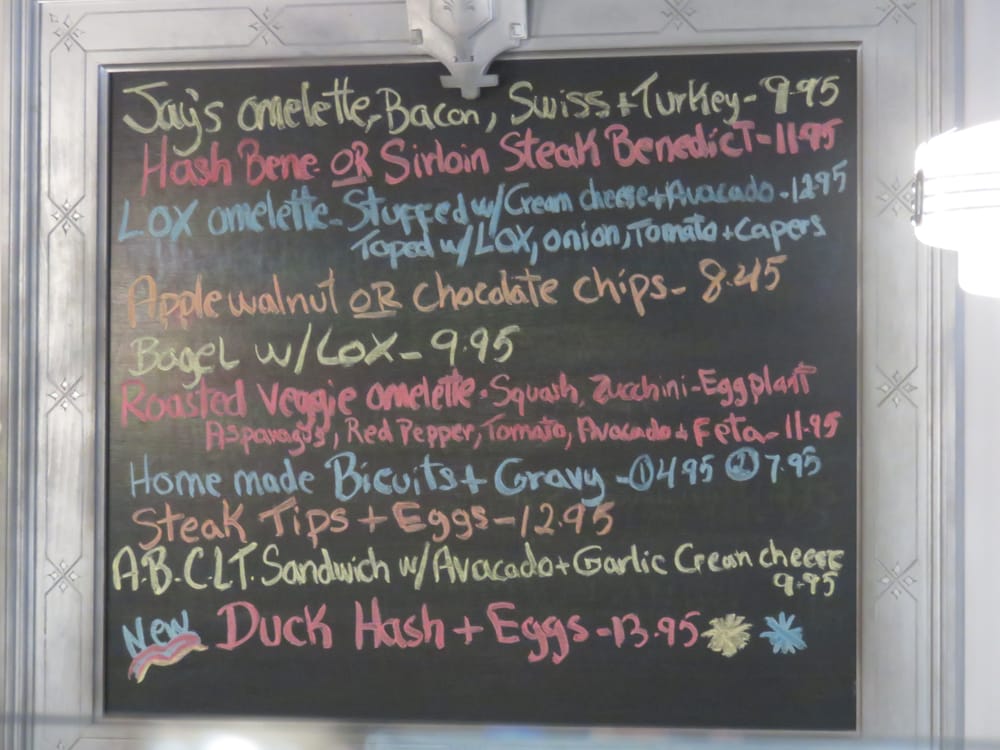 Jay's omelette, Bacon, Swiss + Turkey - 9.95
Hash Bene OR Sirloin Steak Benedict - 11.95
LOX omelette - Stuffed w/ Cream cheese + Avacado - 12.95
Toped w/ LOX, onion, Tomato + Capers
Apple walnut OR chocolate chips - 8.45
Bagel w/ LOX - 9.95
Roasted Veggie omelette - Squash, Zucchini - Eggplant
Asparagus, Red Pepper, Tomato, Avacado + Feta - 11.95
Home made Bicuits + Gravy - ① 4.95 ② 7.95
Steak Tips + Eggs - 12.95
A.B.C.L.T. Sandwich w/ Avacado + Garlic Cream cheese
9.95
New Duck Hash + Eggs - 13.95